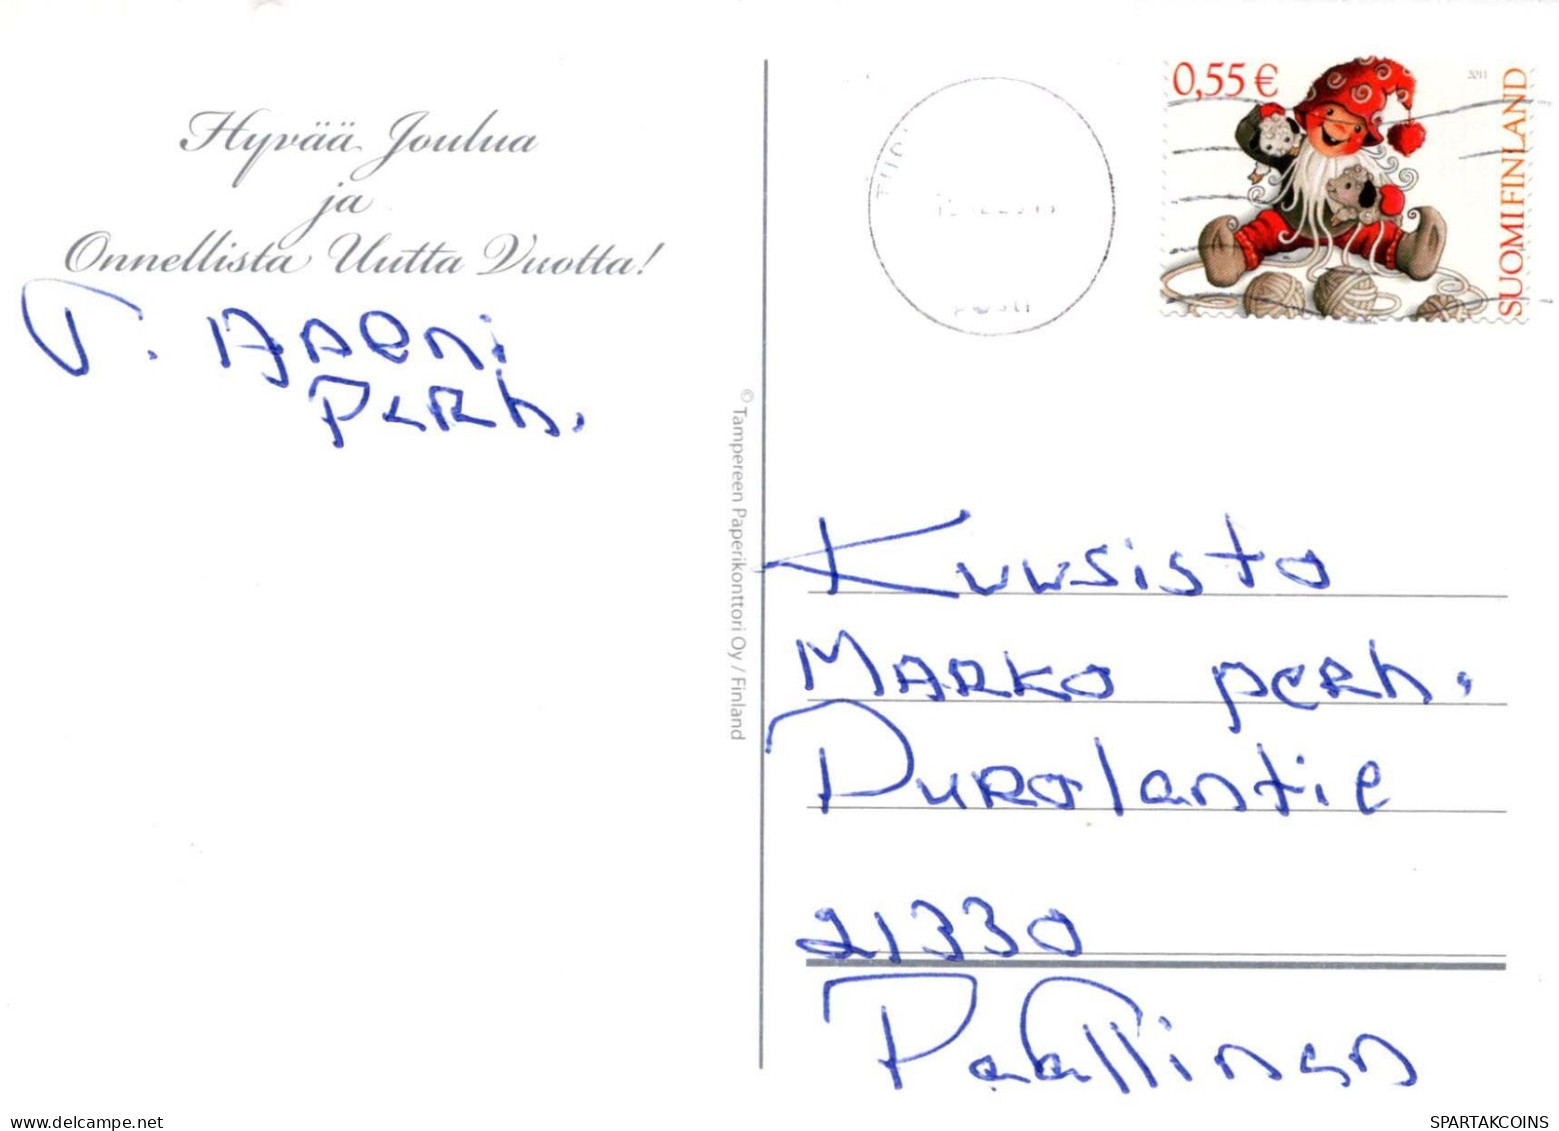 Hyvää Joulua
ja
Onnellista Uutta Vuotta!
T. Aaroni
Perh.
© Tampereen Paperikonttori Oy / Finland
0,55 €
2011
SUOMI FINLAND
posti
Kuusisto
Marko perh.
Purolantie
21330
Paattinen
SPARTAKCOINS
delcampe.net